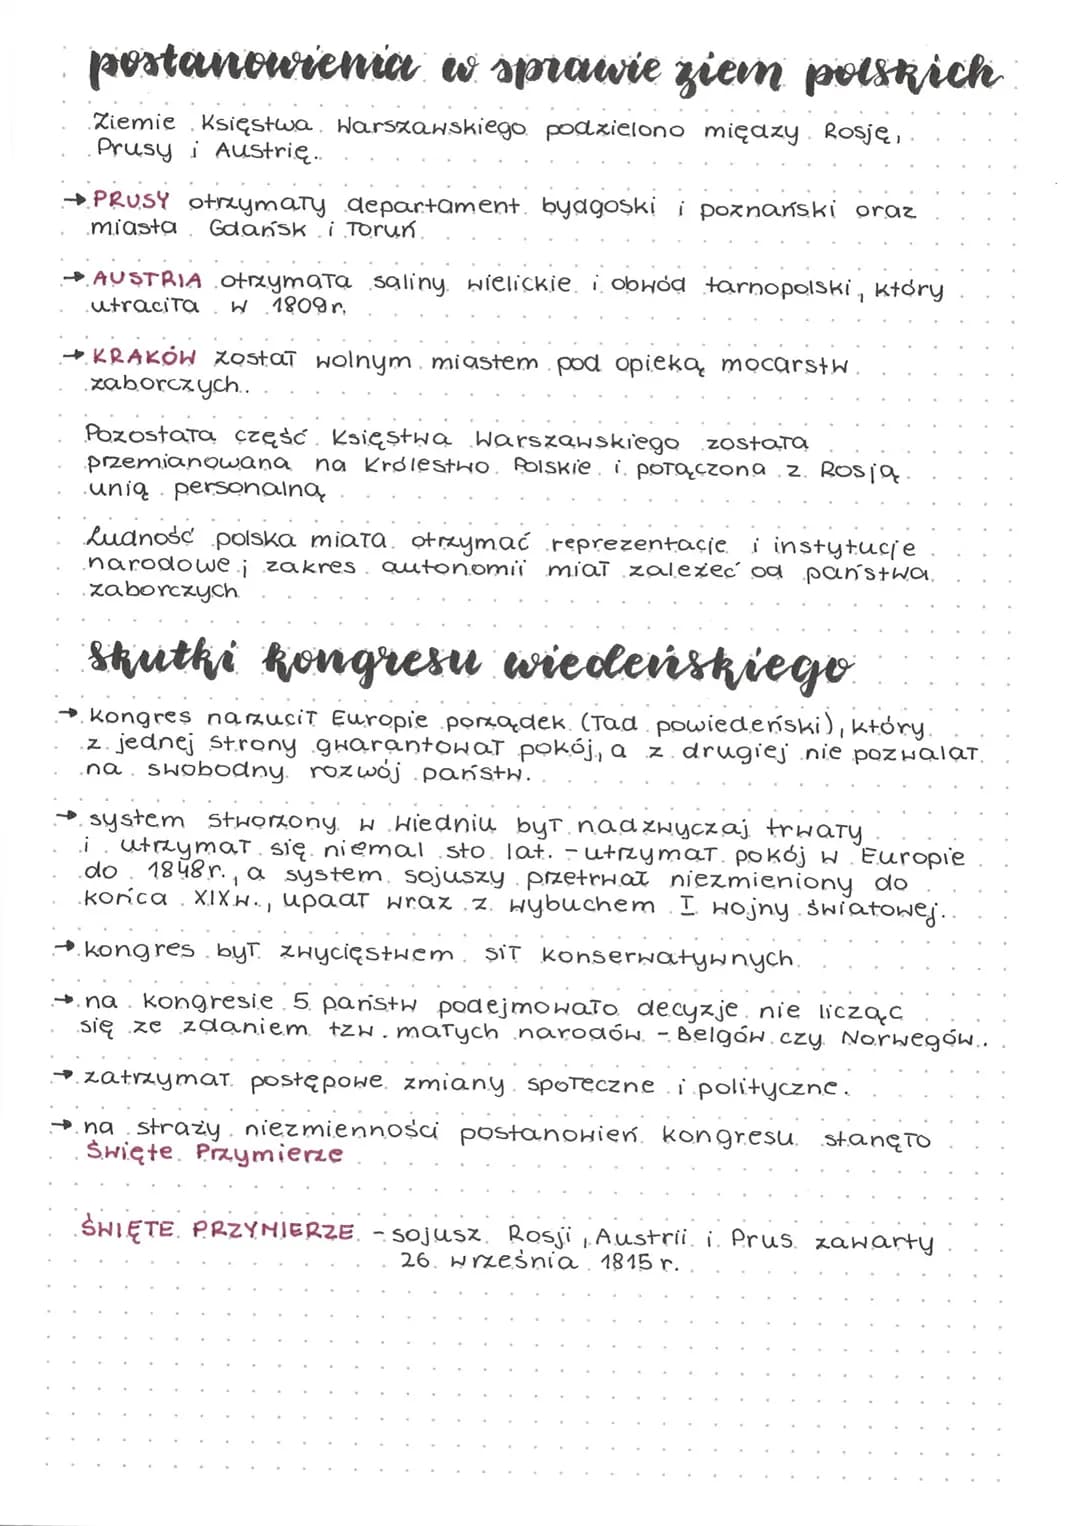 postanowienia w sprawie ziem polskich
Ziemie Księstwa Warszawskiego podzielono między Rosję,
Prusy i Austrię.
→ PRUSY otrzymały departament bydgoski i poznański oraz
miasta Gdańsk i Toruń.
→ AUSTRIA otrzymała saliny wielickie i obwód tarnopolski, który
utraciła w 1809r.
→ KRAKÓW został wolnym miastem pod opieką mocarstw
zaborczych.
Pozostała część Księstwa Warszawskiego została
przemianowana na Królestwo Polskie i połączona z Rosją
unią personalną
Ludność polska miała otrzymać reprezentacje i instytucje
narodowe; zakres autonomii miał zależeć od państwa
zaborczych
skutki kongresu wiedeńskiego
→ kongres narzucił Europie porządek (ład powiedeński), który
z jednej strony gwarantował pokój, a z drugiej nie pozwalał
na swobodny rozwój państw.
→ system stworzony w Wiedniu był nadzwyczaj trwały
i utrzymał się niemal sto lat. - utrzymał pokój w Europie
do 1848r., a system sojuszy przetrwał niezmieniony do
końca XIXw., upadł wraz z wybuchem I wojny światowej.
→ kongres był zwycięstwem sił konserwatywnych.
→ na kongresie 5 państw podejmowało decyzje nie licząc
się ze zdaniem tzw. małych narodów - Belgów czy Norwegów.
→ zatrzymał postępowe zmiany społeczne i polityczne.
→ na straży niezmienności postanowień kongresu stanęło
Święte Przymierze
ŚWIĘTE PRZYMIERZE - sojusz Rosji, Austrii i Prus zawarty
26 września 1815 r.